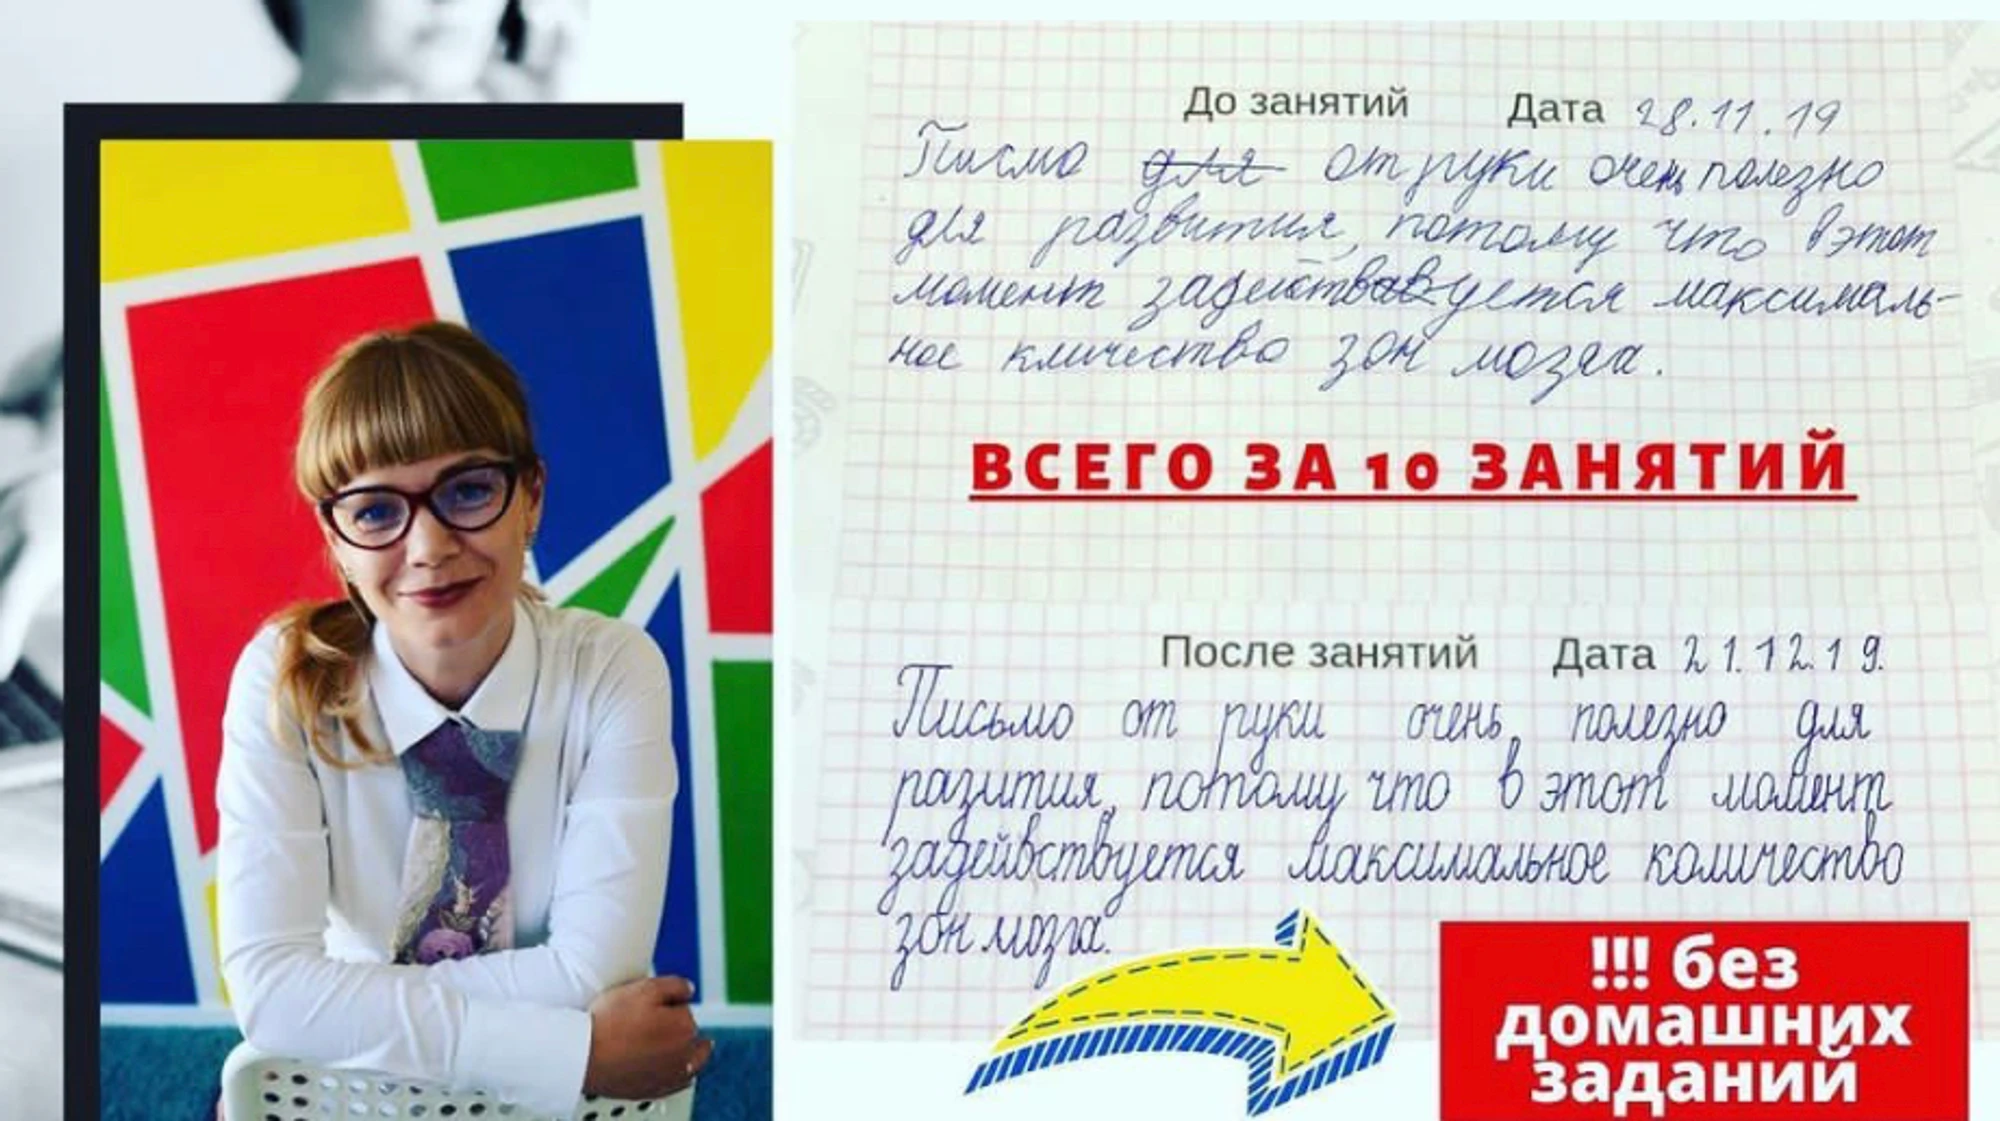 До занятий Дата 28.11.19
Писмо для от руки очень полезно
для развития, потому что в этот
момент задействавуется максималь-
ное кличество зон мозга.
ВСЕГО ЗА 10 ЗАНЯТИЙ
После занятий Дата 21.12.19.
Письмо от руки очень полезно для
разития, потому что в этот момент
задейвствуется максимальное количество
зон мозга.
!!! без
домашних
заданий